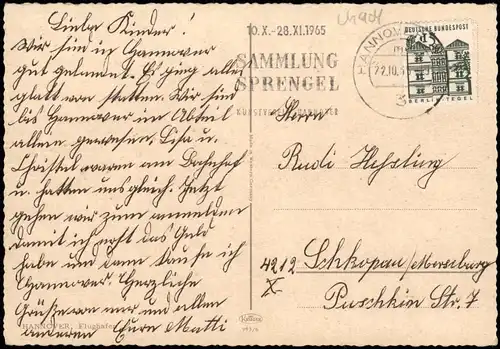 Liebe Kinder!
Wir sind in Hannover
gut gelandet. Es ging alles
glatt von statten. Wir sind
bis Hannover im Abteil
allein gewesen. Lisa u.
Christel waren am Bahnhof
u. hatten uns gleich. Jetzt
gehen wir zum anmelden
damit ich noch das Geld
habe und dann kaufe ich
Hannover. Herzliche
Grüße von mir und allen
anderen Eure Mutti
HANNOVER, Flughafen
10.X.-28.XI.1965
SAMMLUNG
SPRENGEL
KUNSTVEREIN HANNOVER
HANNOVER
22.10.
3
DEUTSCHE BUNDESPOST
BERLIN-TEGEL
Herrn
Rudi Heßling
4212 Schkopau/Merseburg
X
Puschkin Str. 7